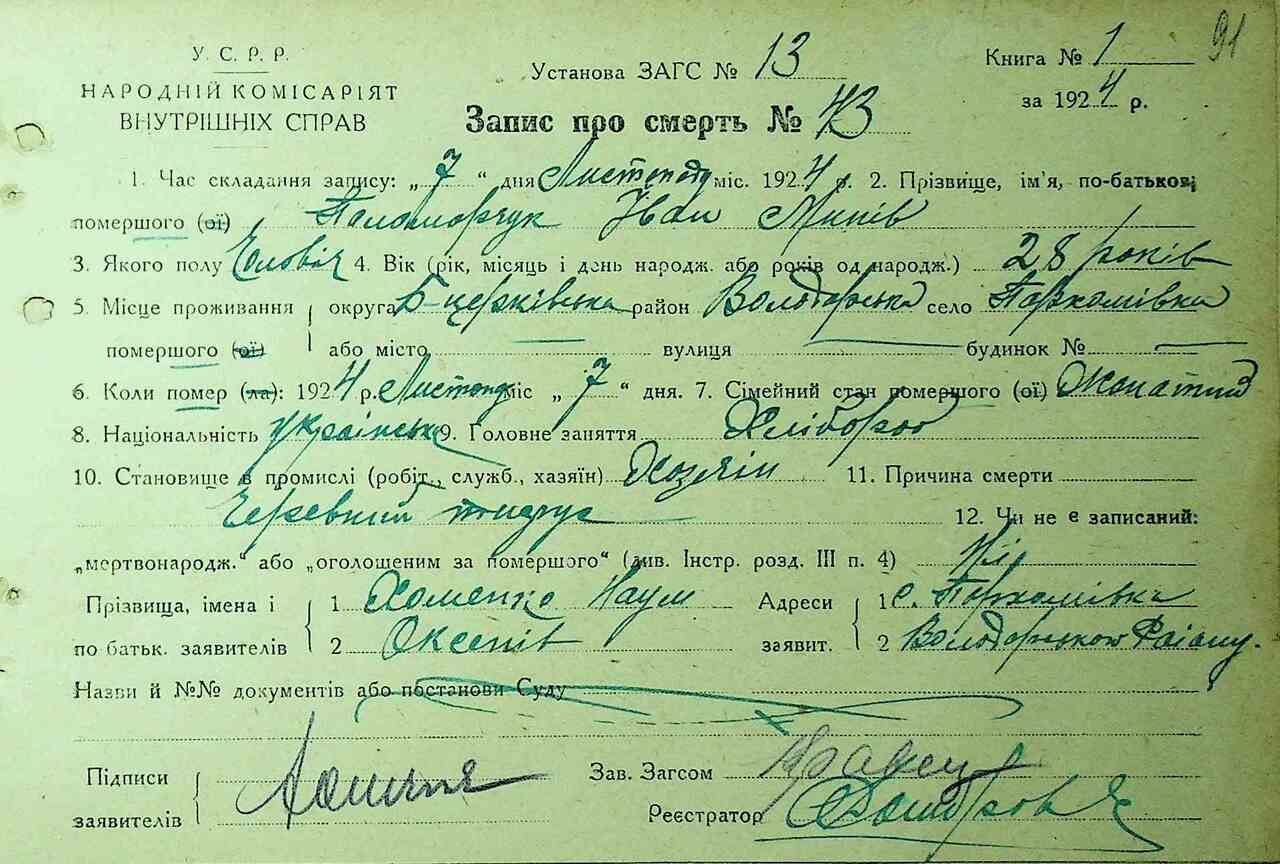 91
У. С. Р. Р.
НАРОДНІЙ КОМІСАРІЯТ
ВНУТРІШНІХ СПРАВ
Установа ЗАГС № 13
Книга № 1
за 1924 р.
Запис про смерть № 43
1. Час складання запису: „7“ дня Листопаду міс. 1924 р. 2. Прізвище, ім'я, по-батькові
помершого (ої) Паламарчук Іван
3. Якого полу Чоловік 4. Вік (рік, місяць і день народж. або років од народж.) 28 років
5. Місце проживання округа Б-церківська район Володарська село Пархомівка
помершого (ої) або місто вулиця будинок №
6. Коли помер (ла): 1924 р. Листопад міс „7“ дня. 7. Сімейний стан помершого (ої) Жонатий
8. Національність українська 9. Головне заняття Хлібороб
10. Становище в промислі (робіт., служб., хазяїн) Хозяін 11. Причина смерти
Черевний 12. Чи не є записаний:
„мертвонародж.“ або „оголошеним за помершого“ (див. Інстр. розд. III п. 4) Ні
Прізвища, імена і 1 Хоменко Наум Адреси 1 с. Пархомівка
по батьк. заявителів 2 Оксентів заявит. 2 Володарського Раіону.
Назви й №№ документів або постанови Суду
Підписи
заявителів
Зав. Загсом
Реєстратор